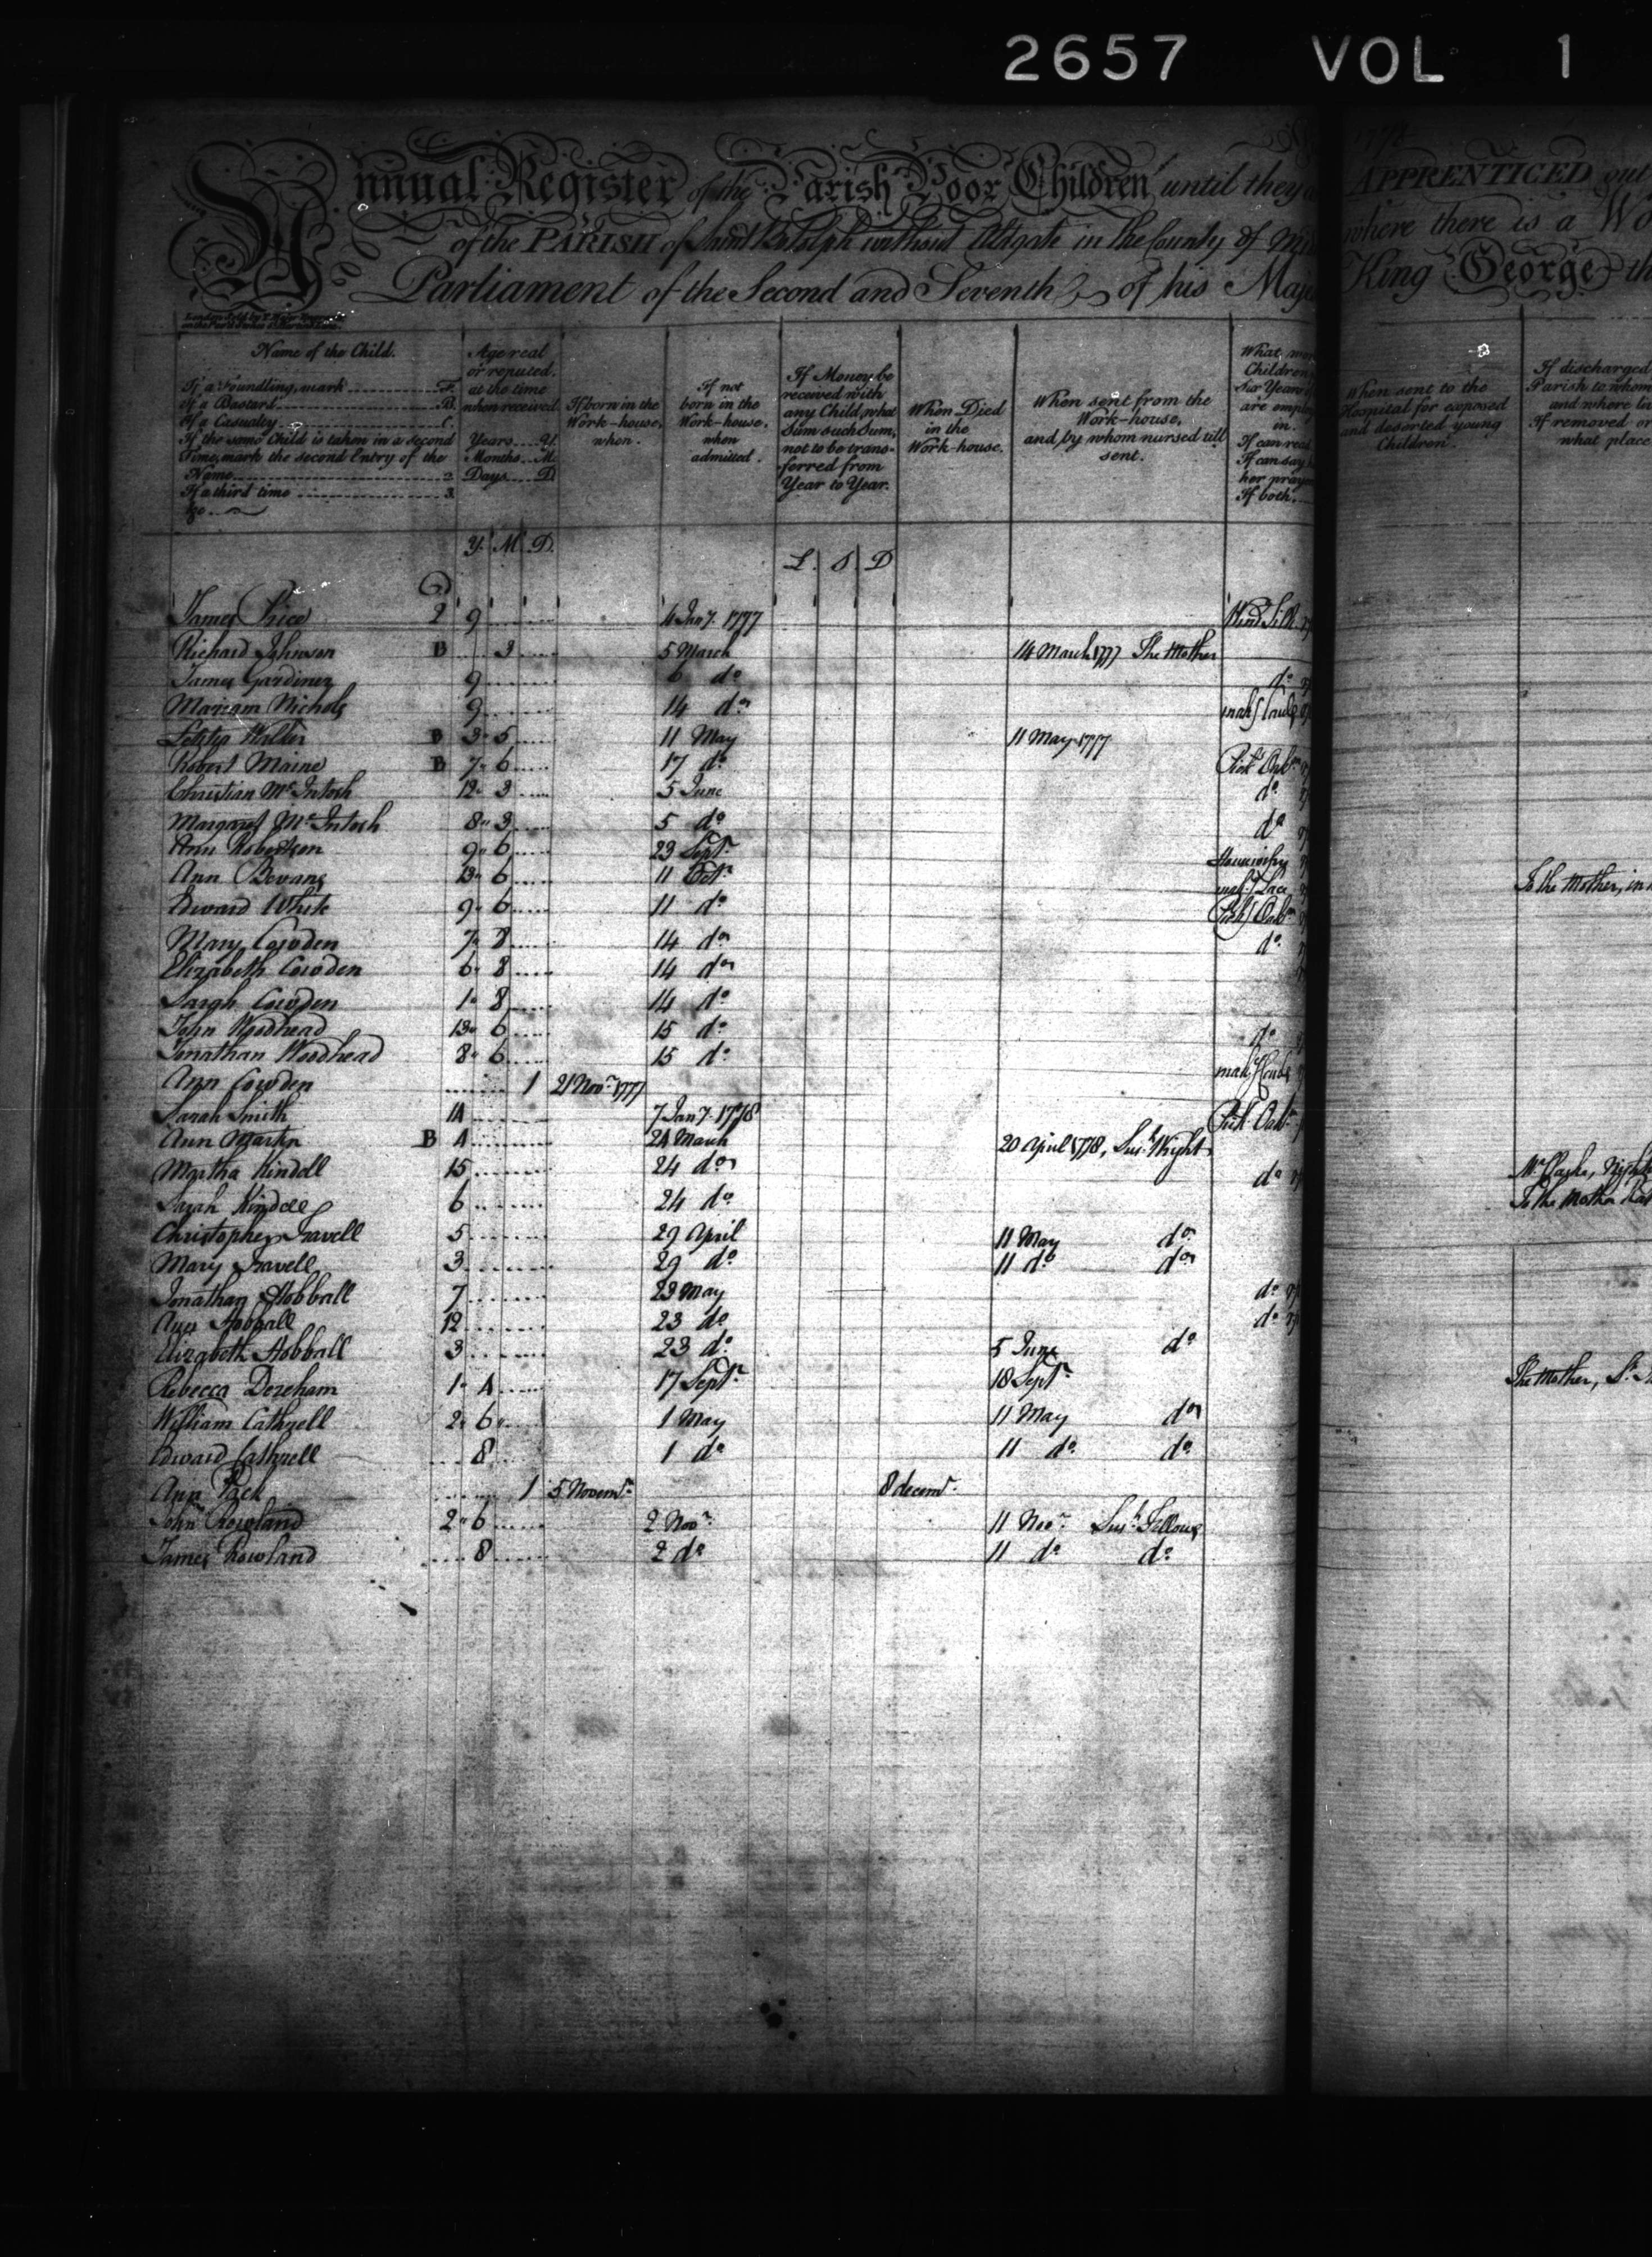 2657 VOL 1
Annual Register of the Parish Poor Children until they
of the PARISH of Saint Botolph without Aldgate in the County of Mid
Parliament of the Second and Seventh of his Maje
Name of the Child.
If a Foundling, mark F.
If a Bastard B.
If a Casualty C.
If the same Child is taken in a second
Time, mark the second Entry of the
Name 2.
If a third time 3.
&c.
Age real
or reputed,
at the time
when received
Years Y.
Months M.
Days D.
If born in the
Work-house,
when.
If not
born in the
Work-house,
when
admitted.
If Money be
received with
any Child, what
Sum such Sum,
not to be trans-
ferred from
Year to Year.
When Died
in the
Work-house.
When sent from the
Work-house,
and by whom nursed till
sent.
What
Children
Six Years
are emplo
in.
If can read
If can say
her praye
If both.
Y. M. D.
L. S. D
James Price 2 9 4 Jany. 1777 Wind Silk
Richard Johnson B 3 5 March 14 March 1777 The Mother
James Gardiner 9 6 do do
Mariam Nichols 9 14 do
Letitia Walter B 3 5 11 May 11 May 1777
Robert Maine B 7 6 17 do Pick Oakm
Christian McIntosh 12 3 5 June do
Margaret McIntosh 8 3 5 do do
Ann Robertson 9 6 23 Sept. Housewifry
Ann Bevans 13 6 11 Octr Lace
Edward White 9 6 11 do Pick Oakm
Mary Cowden 7 8 14 do do
Elizabeth Cowden 6 8 14 do
Sarah Cowden 1 8 14 do
John Woodhead 13 6 15 do do
Jonathan Woodhead 8 6 15 do
Ann Cowden 1 21 Novr 1777
Sarah Smith 14 7 Jany. 1778 Pick Oakm
Ann Martin B 4 24 March 20 April 1778, Sush Wright
Martha Kindell 15 24 do do
Sarah Kindell 6 24 do
Christopher Fravell 5 29 April 11 May do
Mary Fravell 3 29 do 11 do do
Jonathan Hobball 7 23 May do
Ann Hobball 12 23 do do
Elizabeth Hobball 3 23 do 5 June do
Rebecca Dereham 1 4 17 Septr 18 Septr
William Cathrell 2 6 1 May 11 May do
Edward Cathrell 8 1 do 11 do do
Ann Pack 1 5 Novemr 8 decemr
John Rowland 2 6 2 Novr 11 Novr Sush Fellows
James Rowland 8 2 do 11 do do
1778
APPRENTICED out
where there is a Wo
King George th
When sent to the
Hospital for exposed
and deserted young
Children.
If discharged
Parish to whom
and where
If removed or
what place
To the Mother, in
To the Mother
The Mother, St.